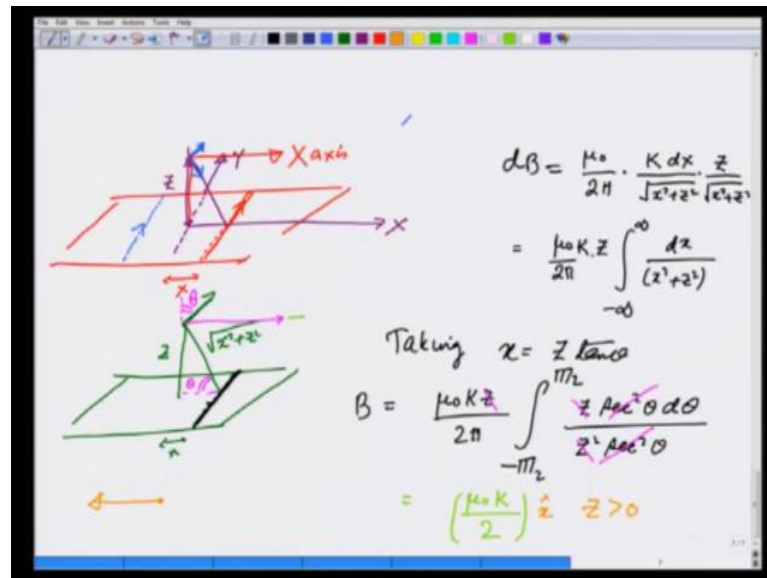 File Edit View Insert Actions Tools Help
X axis
Y
Z
X
x
θ
Z
√x²+z²
θ
x
dB = μ₀/2π · K dx/√x²+z² · z/√x²+z²
= μ₀K.Z/2π ∫_{-∞}^{∞} dx/(x²+z²)
Taking x = Z tanθ
B = μ₀KZ/2π ∫_{-π/2}^{π/2} Z sec²θ dθ/Z² sec²θ
= (μ₀K/2) x̂ Z>0